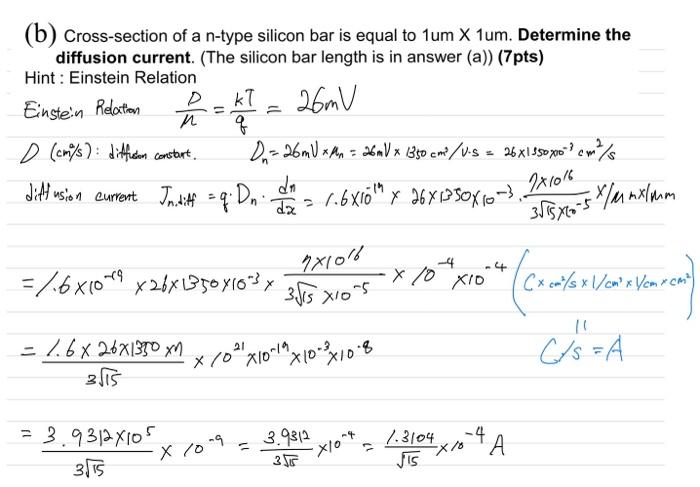 (b) Cross-section of a n-type silicon bar is equal to 1um X 1um. Determine the
diffusion current. (The silicon bar length is in answer (a)) (7pts)
Hint : Einstein Relation
Einstein Relation D/μ = kT/q = 26mV
D (cm²/s): diffusion constant. Dₙ = 26mV × μₙ = 26mV × 1350 cm²/V·s = 26×1350×10⁻³ cm²/s
diffusion current Jn,diff = q·Dₙ· dn/dx = 1.6×10⁻¹⁹ × 26×1350×10⁻³ · 7×10¹⁶/3√15×10⁻⁵ × 1μm×1μm
= 1.6×10⁻¹⁹ ×26×1350×10⁻³ × 7×10¹⁶/3√15 ×10⁻⁵ × 10⁻⁴ ×10⁻⁴ (C× cm²/s × 1/cm³ × 1/cm × cm²)
= 1.6× 26×1350 ×7/3√15 × 10²¹×10⁻¹⁹×10⁻³×10⁻⁸ C/s = A
= 3.9312×10⁵/3√15 × 10⁻⁹ = 3.9312/3√15 ×10⁻⁴ = 1.3104/√15 ×10⁻⁴ A